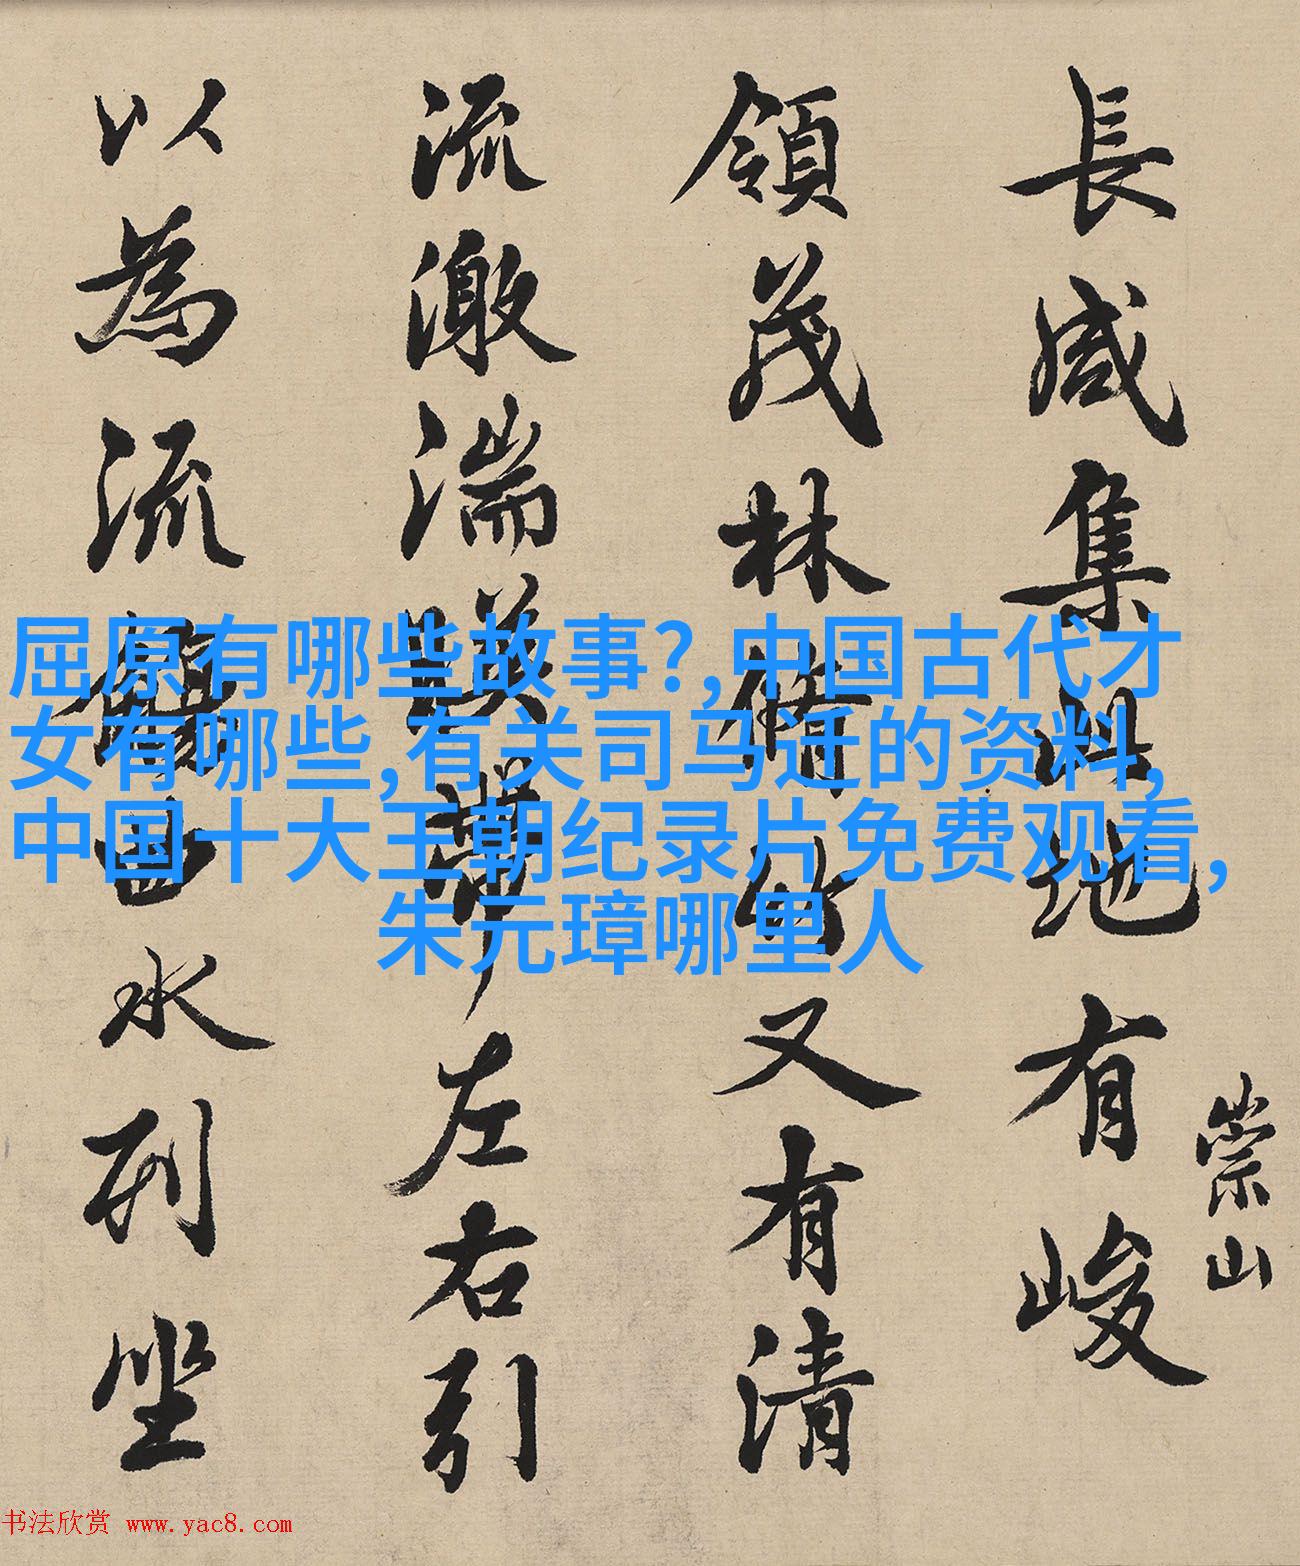 長咸集此地有峻
崇山
領茂林脩竹又有清
流激湍暎帶左右引
以為流觴曲水列坐
屈原有哪些故事?,中国古代才
女有哪些,有关司马迁的资料,
中国十大王朝纪录片免费观看,
朱元璋哪里人
书法欣赏 www.yac8.com